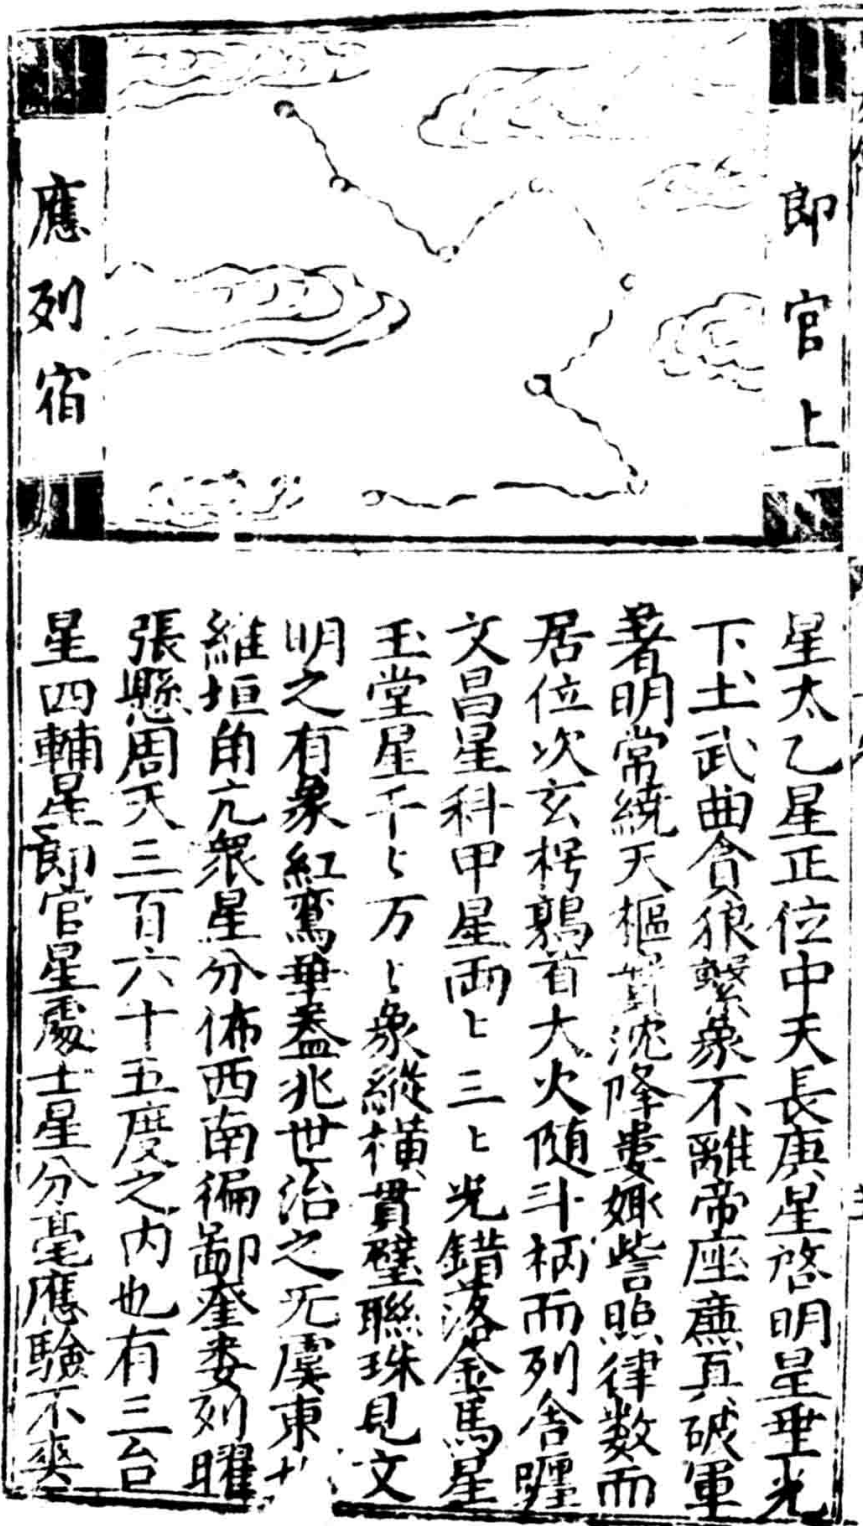 郎官上
應列宿
星太乙星正位中天長庚星啓明星垂光
下土武曲貪狼繫象不離帝座廉真破軍
著明常繞天樞實沈降婁娵訾照律數而
居位次玄枵鶉首大火随斗柄而列舍躔
文昌星科甲星兩〻三〻光錯落金馬星
玉堂星千〻万〻象縱横貫璧聯珠見文
明之有象紅鸞華葢兆世治之无虞東
維垣角亢衆星分佈西南徧鄙奎婁列曜
張懸周天三百六十五度之内也有三台
星四輔星郎官星處士星分毫應驗不爽